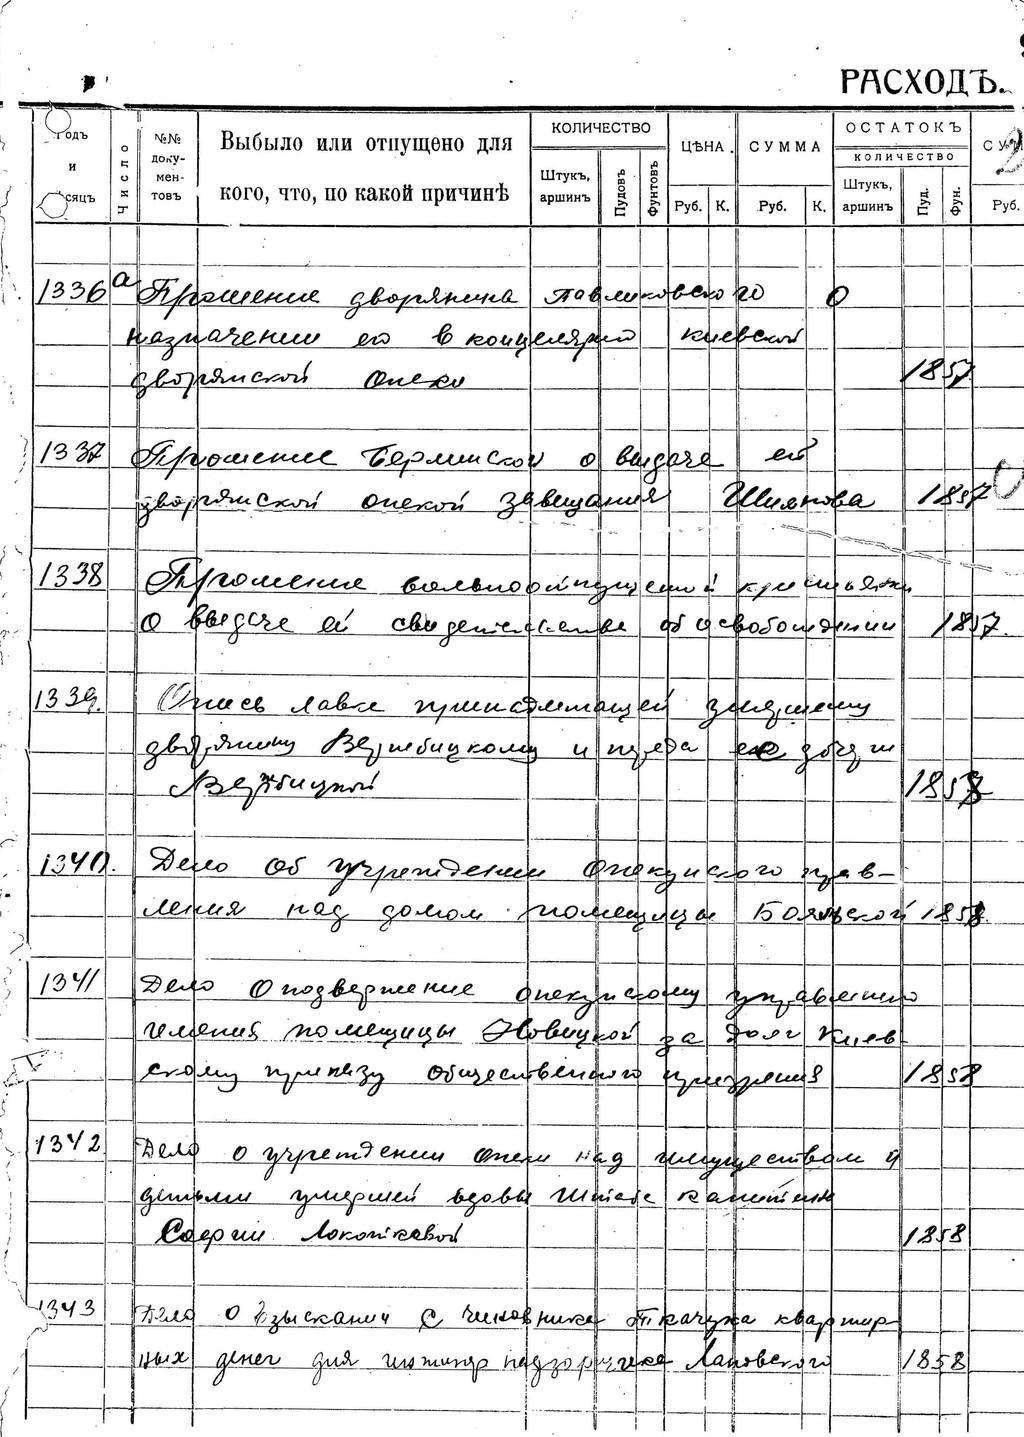 РАСХОДЪ.
Годъ и Мѣсяцъ
Число
№№ документовъ
Выбыло или отпущено для
кого, что, по какой причинѣ
КОЛИЧЕСТВО
Штукъ, аршинъ
Пудовъ
Фунтовъ
ЦѢНА.
Руб. К.
СУММА
Руб. К.
ОСТАТОКЪ
КОЛИЧЕСТВО
Штукъ, аршинъ
Пуд.
Фун.
Руб.
1336а Прошение дворянина Павликовского о
назначении его в концелярию Киевской
дворянской опеки 1857
1337 Прошение Берлинской о выдаче ей
дворянской опекой завещания Шиянова 1857
1338 Прошение вольноотпущеной крестьянки
о выдаче ей свидетельства об освобождении 1857.
1339. Опись лавке принадлежащей умершему
дворянину Вержбицкому и ее дочери
Вержбицкой 1858
1340. Дело об учреждении Опекунского прав-
ления над домом помещицы Боярской 1858
1341 Дело о подвержение опекунскому управлению
имения помещицы Новицкой за долг Киев-
скому приказу общественного призрения 1858
1342 Дело о учреждении опеки над имуществом и
детьми умершей вдовы Штабс капитана
Софии Локотковой 1858
1343 Дело о взыскании с чиновника Ткачука квартир-
ных денег для надзорщика Лановского 1858